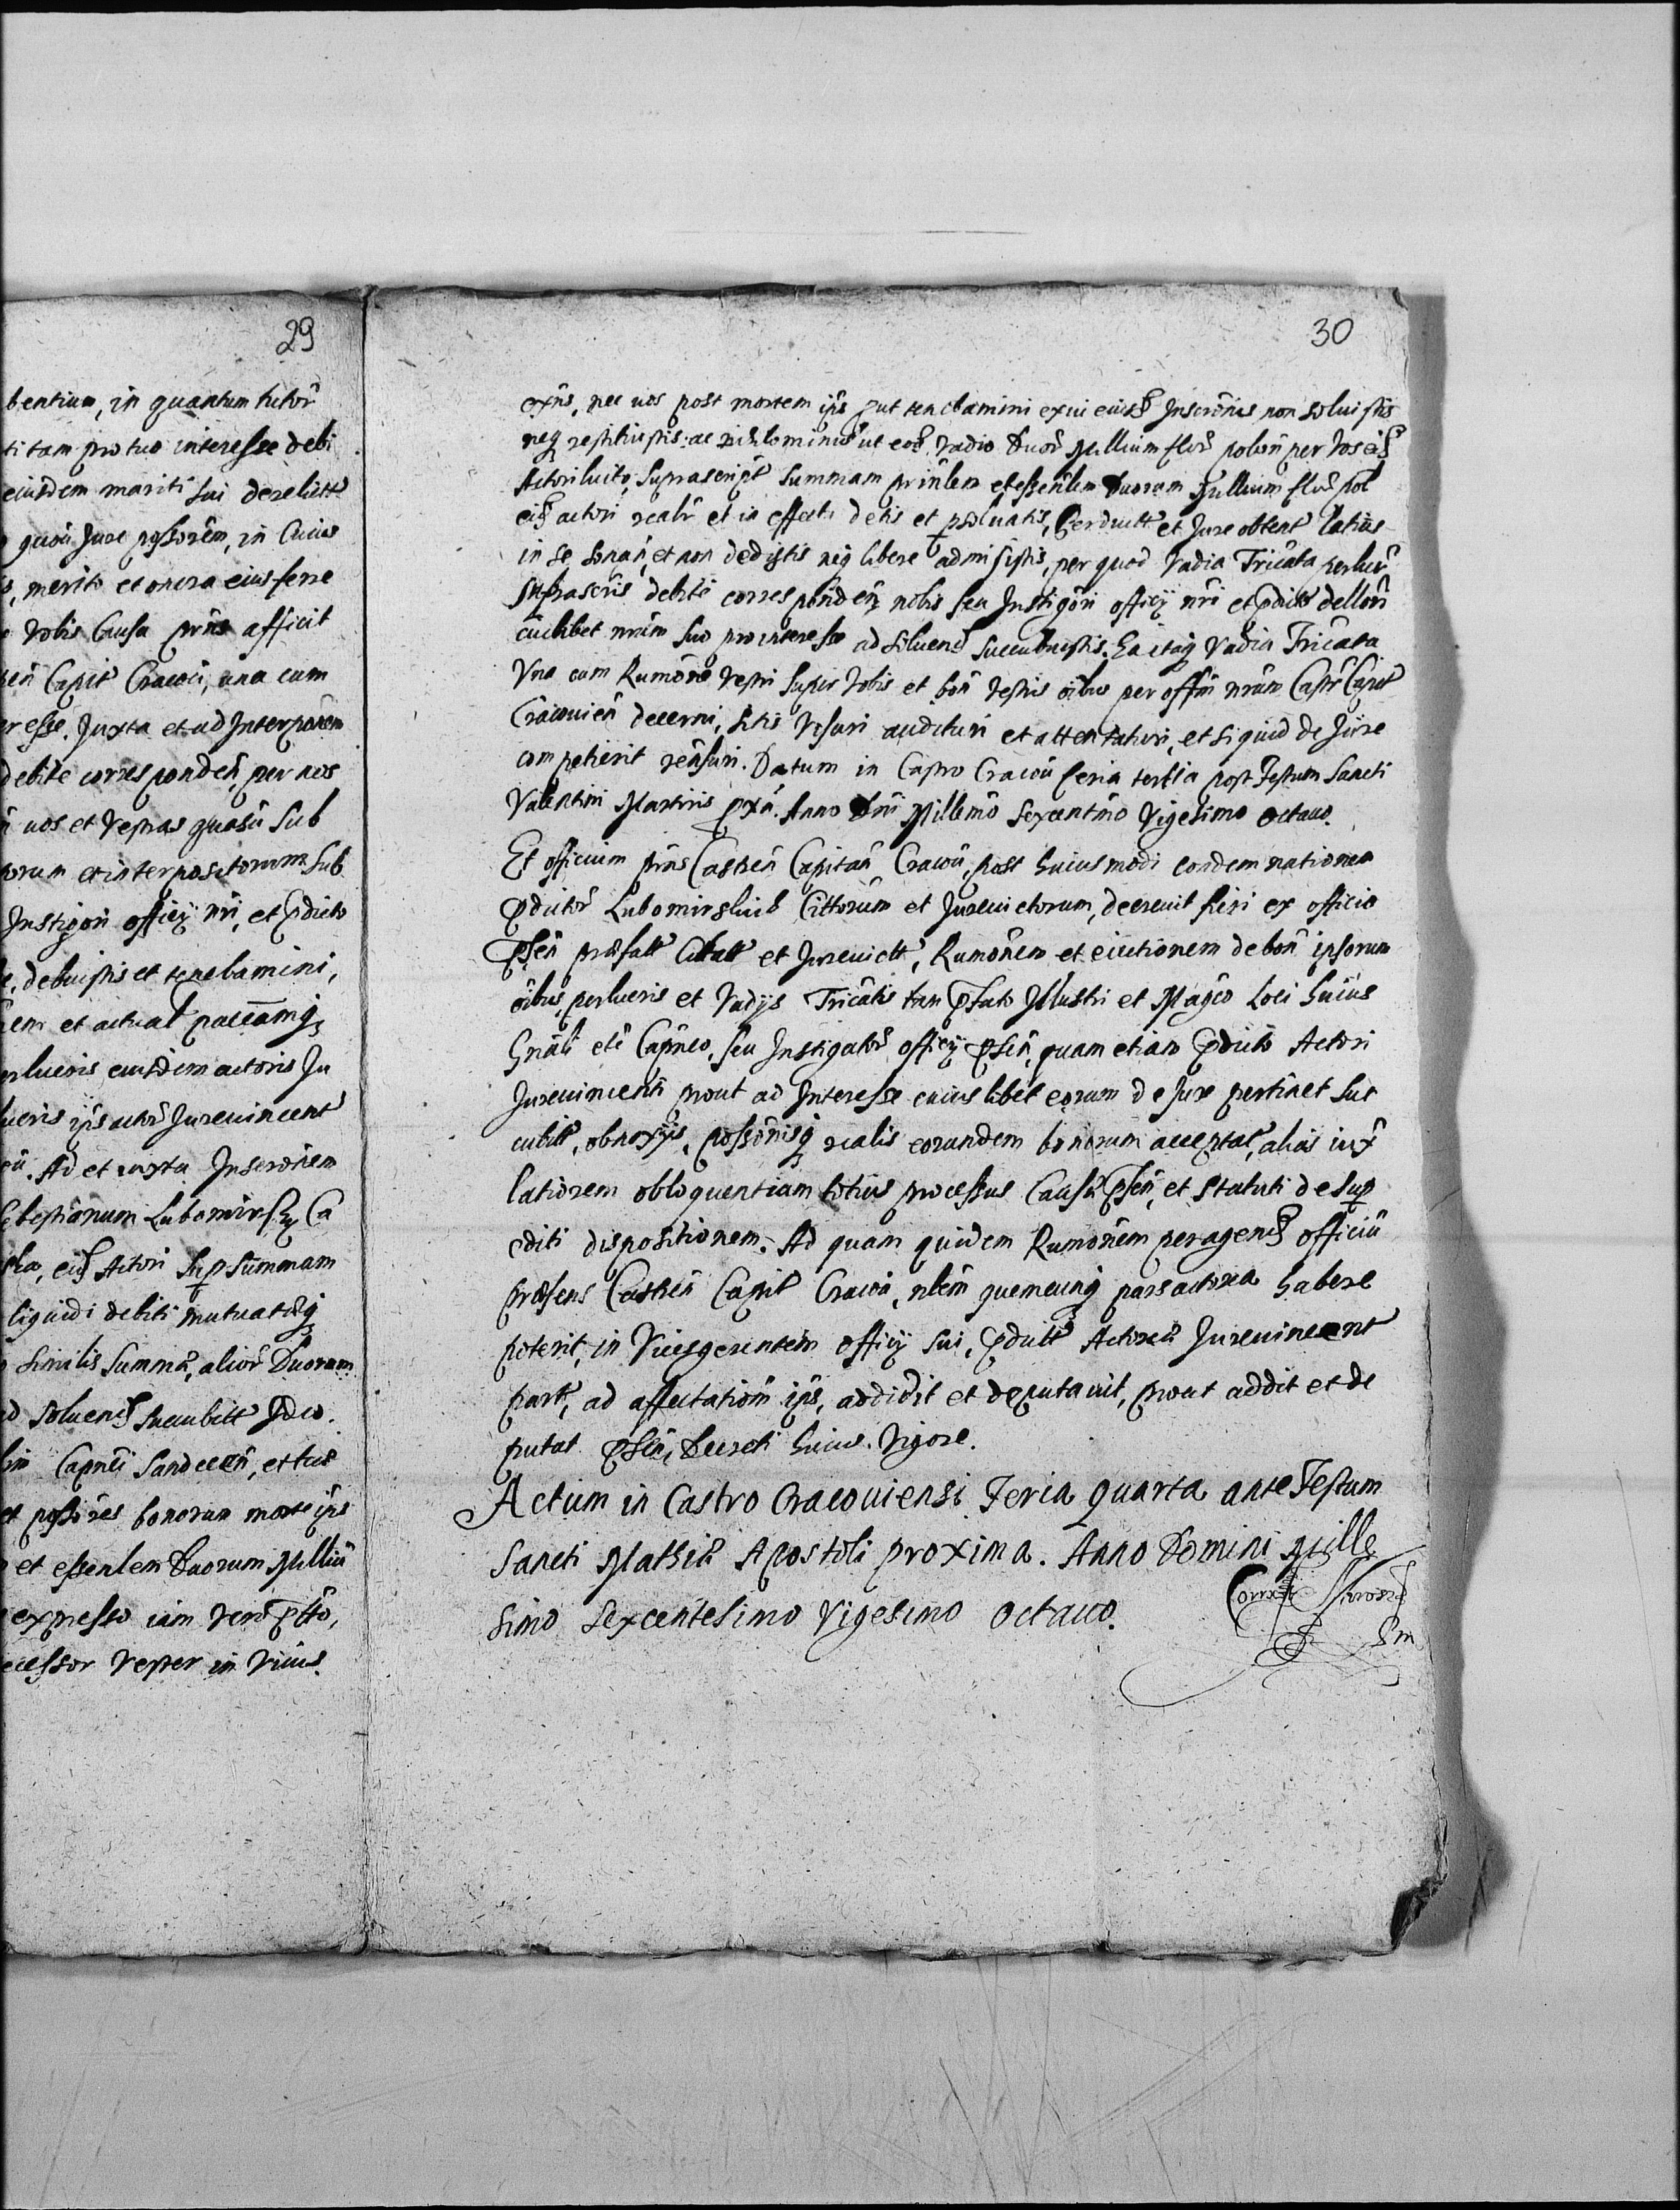 29
bentium, in quantum tutor
ti tam pro tuo interesse debi
eiusdem mariti sui derelict
quoū Jure possorem, in cuius
merito et onera eius ferre
Vobis Causa prns afficit
Capit Cracoū, una cum
resse. Juxta et ad Interpõnem
debite corresponden, per nos
uos et Vestras quasū sub
orum et interpositorum sub
Instigori officy nri, et pdicto
debuistis et tenebamini,
em et actual paccamq
erlueris eiusdem actoris Ju
ueris ips actor Jureuincent
Ad et iuxta Inscronem
Sebestianum Lubomirsky Ca
eid Actori sup summam
liquidi debiti mutuatæq
similis Summæ, alior Duorum
d soluend succubitt Ideo.
Capnei Sandecen, et tue
et possores bonorum morte ips
et essenlem Duorum Milliū
expresso iam vero ptto,
ecessor Vester in Viuis.
30
exns, nec uos post mortem ips put tenebamini exui eiusd Inscronis non soluistis
neq restituistis: ac nihilominus ut eod Vadio Duor Millium flor polon per Vos eid
Actori luito, suprascript summam prinlem et essenlem Duorum Millium flor pol
eid actori realr et in effectu detis et psoluatis, perduct et Jure obtent latius
in se sonan, et non dedistis neq libere admisistis, per quod Vadia Tricata perlucr
Suprascris debite corresponden, nobis seu Instigori officy nri et pdicto dellori
cuilibet nrum suo pro interesse ad soluend succubuistis. Ea itaq Vadia Tricata
Vna cum Rumone Vestri super Vobis et bon Vestris oibus per offm nrum Castr Capit
Cracouien decerni, sitis Visuri audituri et attentaturi, et si quid de Jure
competierit rensuri. Datum in Castro Cracoū feria tertia post Festum Sancti
Valentini Martiris pxa. Anno Dni Millemo Sexcentmo Vigesimo Octauo.
Et officium prns Castren Capitan Cracoū, post huiusmodi condemnationem
pdictor Lubomirskich Cittorum et Jureuictorum, decreuit fieri ex officio
psen præfatt Citatt et Jureuictt, Rumonem et eiectionem de bon ipsorum
oibus, perlueris et Vadys Tricatis tam pfato Illustri et Magco Loci huius
Gnali eti Capneo, seu Instigator officy psen, quam etiam pdicto Actori
Jureuincenti prout ad Interesse cuiuslibet eorum de Jure pertinet suc
cubitt, obnoxijs, possonisq realis eorundem bonorum acceptat, alias iux
latiorem obloquentiam totius processus Causæ psen, et statuti desup
editi dispositionem. Ad quam quidem Rumonem peragend officiū
præsens Castren Capit Cracoū, nblem quemcunq pars actorea habere
poterit, in Vicesgerentem officy sui, pdictt Actoreæ Jureuincent
part, ad affectationem ips, addidit et deputauit, prout addit et de
putat psen, Decreti huius Vigore.
Actum in Castro Cracouiensi Feria quarta ante Festum
Sancti Mathiæ Apostoli proxima. Anno Domini Mille
simo Sexcentesimo Vigesimo Octauo.